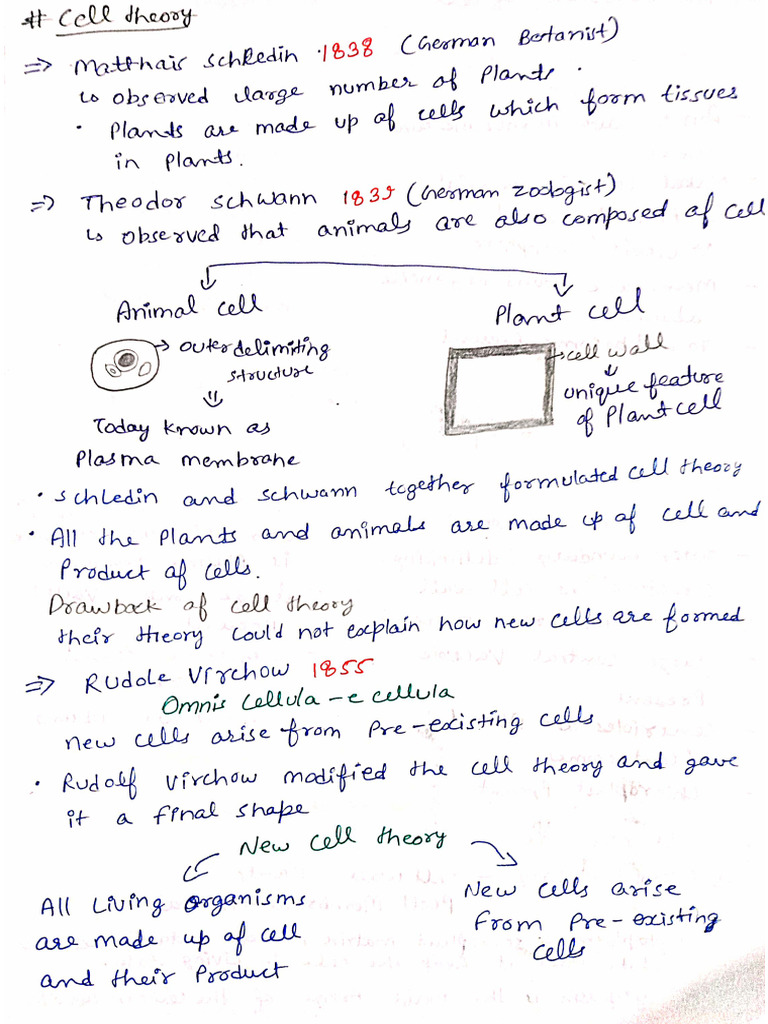 # Cell theory
⇒ Matthais Schledin 1838 (German Botanist)
↳ observed large number of Plants.
• Plants are made up of cells which form tissues
in Plants.
⇒ Theodor Schwann 1839 (German Zoologist)
↳ observed that animals are also composed of cell
Animal cell
Plant cell
→ outer delimiting
structure
→ cell wall
unique feature
of Plant cell
Today known as
Plasma membrane
• Schledin and Schwann together formulated cell theory
• All the Plants and animals are made up of cell and
Product of cells.
Drawback of cell theory
their theory could not explain how new cells are formed
⇒ Rudole Virchow 1855
Omnis Cellula-e cellula
new cells arise from Pre-existing cells
• Rudolf Virchow modified the cell theory and gave
it a final shape
New cell theory
All Living organisms
are made up of cell
and their Product
New cells arise
From Pre-existing
cells